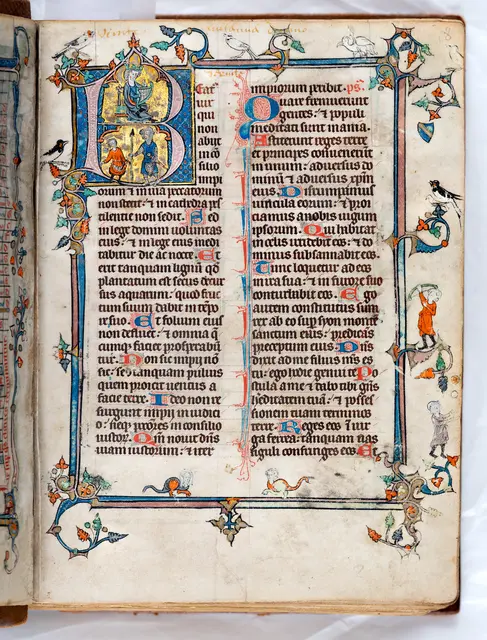 B
eat
uir
qui
non
abijt
in cō
silio
impi
orum ⁊ in uia peccatorum
non stetit: ⁊ in cathedra pes
tilentie non sedit. Sed
in lege domini uoluntas
eius: ⁊ in lege eius medi
tabitur die ac nocte. Et
erit tanquam lignū qd̄
plantatum est secus decur
sus aquarum: quod fruc
tum suum dabit in temp
re suo. Et folium eius
non defluet: ⁊ omnia q̄
cumq̄ faciet prosperabunt
tur. Non sic impij nō
sic: sed tanquam puluis
quem proicit uentus a
facie terre. Ideo non re
surgunt impij in iudici
o: neq̄ pctōres in consilio
iustor̄. Qm̄ nouit dn̄s
uiam iustorum: ⁊ iter
impiorum peribit. ps̄.
Quare fremuerunt
gentes: ⁊ populi
meditati sunt inania.
Astiterunt reges terre
et principes conuenerunt
in unum: aduersus do
minū ⁊ aduersus xp̄m
eius. Dirumpamus
uincula eorum: ⁊ proi
ciamus a nobis iugum
ipsorum. Qui habitat
in celis irridebit eos: ⁊ do
minus subsannabit eos.
Tunc loquetur ad eos
in ira sua: ⁊ in furore suo
conturbabit eos. Ego
autem constitutus sum
rex ab eo sup̄ syon montē
sanctum eius: predicans
preceptum eius. Dn̄s
dixit ad me filius meus es
tu: ego hodie genui te. Po
stula a me ⁊ dabo tibi gētes
hereditatem tuā: ⁊ posses
sionem tuam terminos
terre. Reges eos ī uir
ga ferrea: tanquam uas
figuli confringes eos. Et